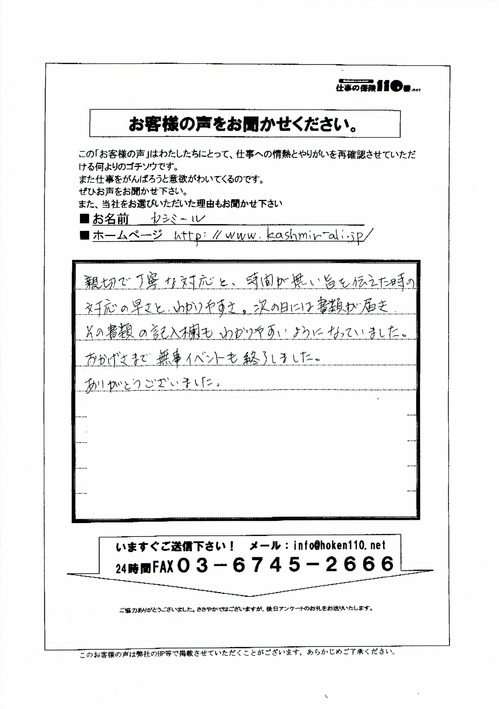 仕事の保険110番.net
お客様の声をお聞かせください。
この「お客様の声」はわたしたちにとって、仕事への情熱とやりがいを再確認させていただ
ける何よりのゴチソウです。
また仕事をがんばろうと意欲がわいてくるのです。
ぜひお声をお聞かせ下さい。
また、当社をお選びいただいた理由もお聞かせ下さい
■お名前 カシミール
■ホームページ http://www.kashmir-ali.jp/
親切で丁寧な対応と、時間が無い旨を伝えた時の
対応の早さと、わかりやすさ。次の日には書類が届き
その書類の記入欄もわかりやすいようになっていました。
おかげさまで無事イベントも終了しました。
ありがとうございました。
いますぐご送信下さい！ メール：info@hoken110.net
24時間FAX０３－６７４５－２６６６
ご協力ありがとうございました。ささやかではございますが、後日アンケートのお礼をお送りいたします。
このお客様の声は弊社のHP等で掲載させていただくことがございます。あらかじめご了承ください。